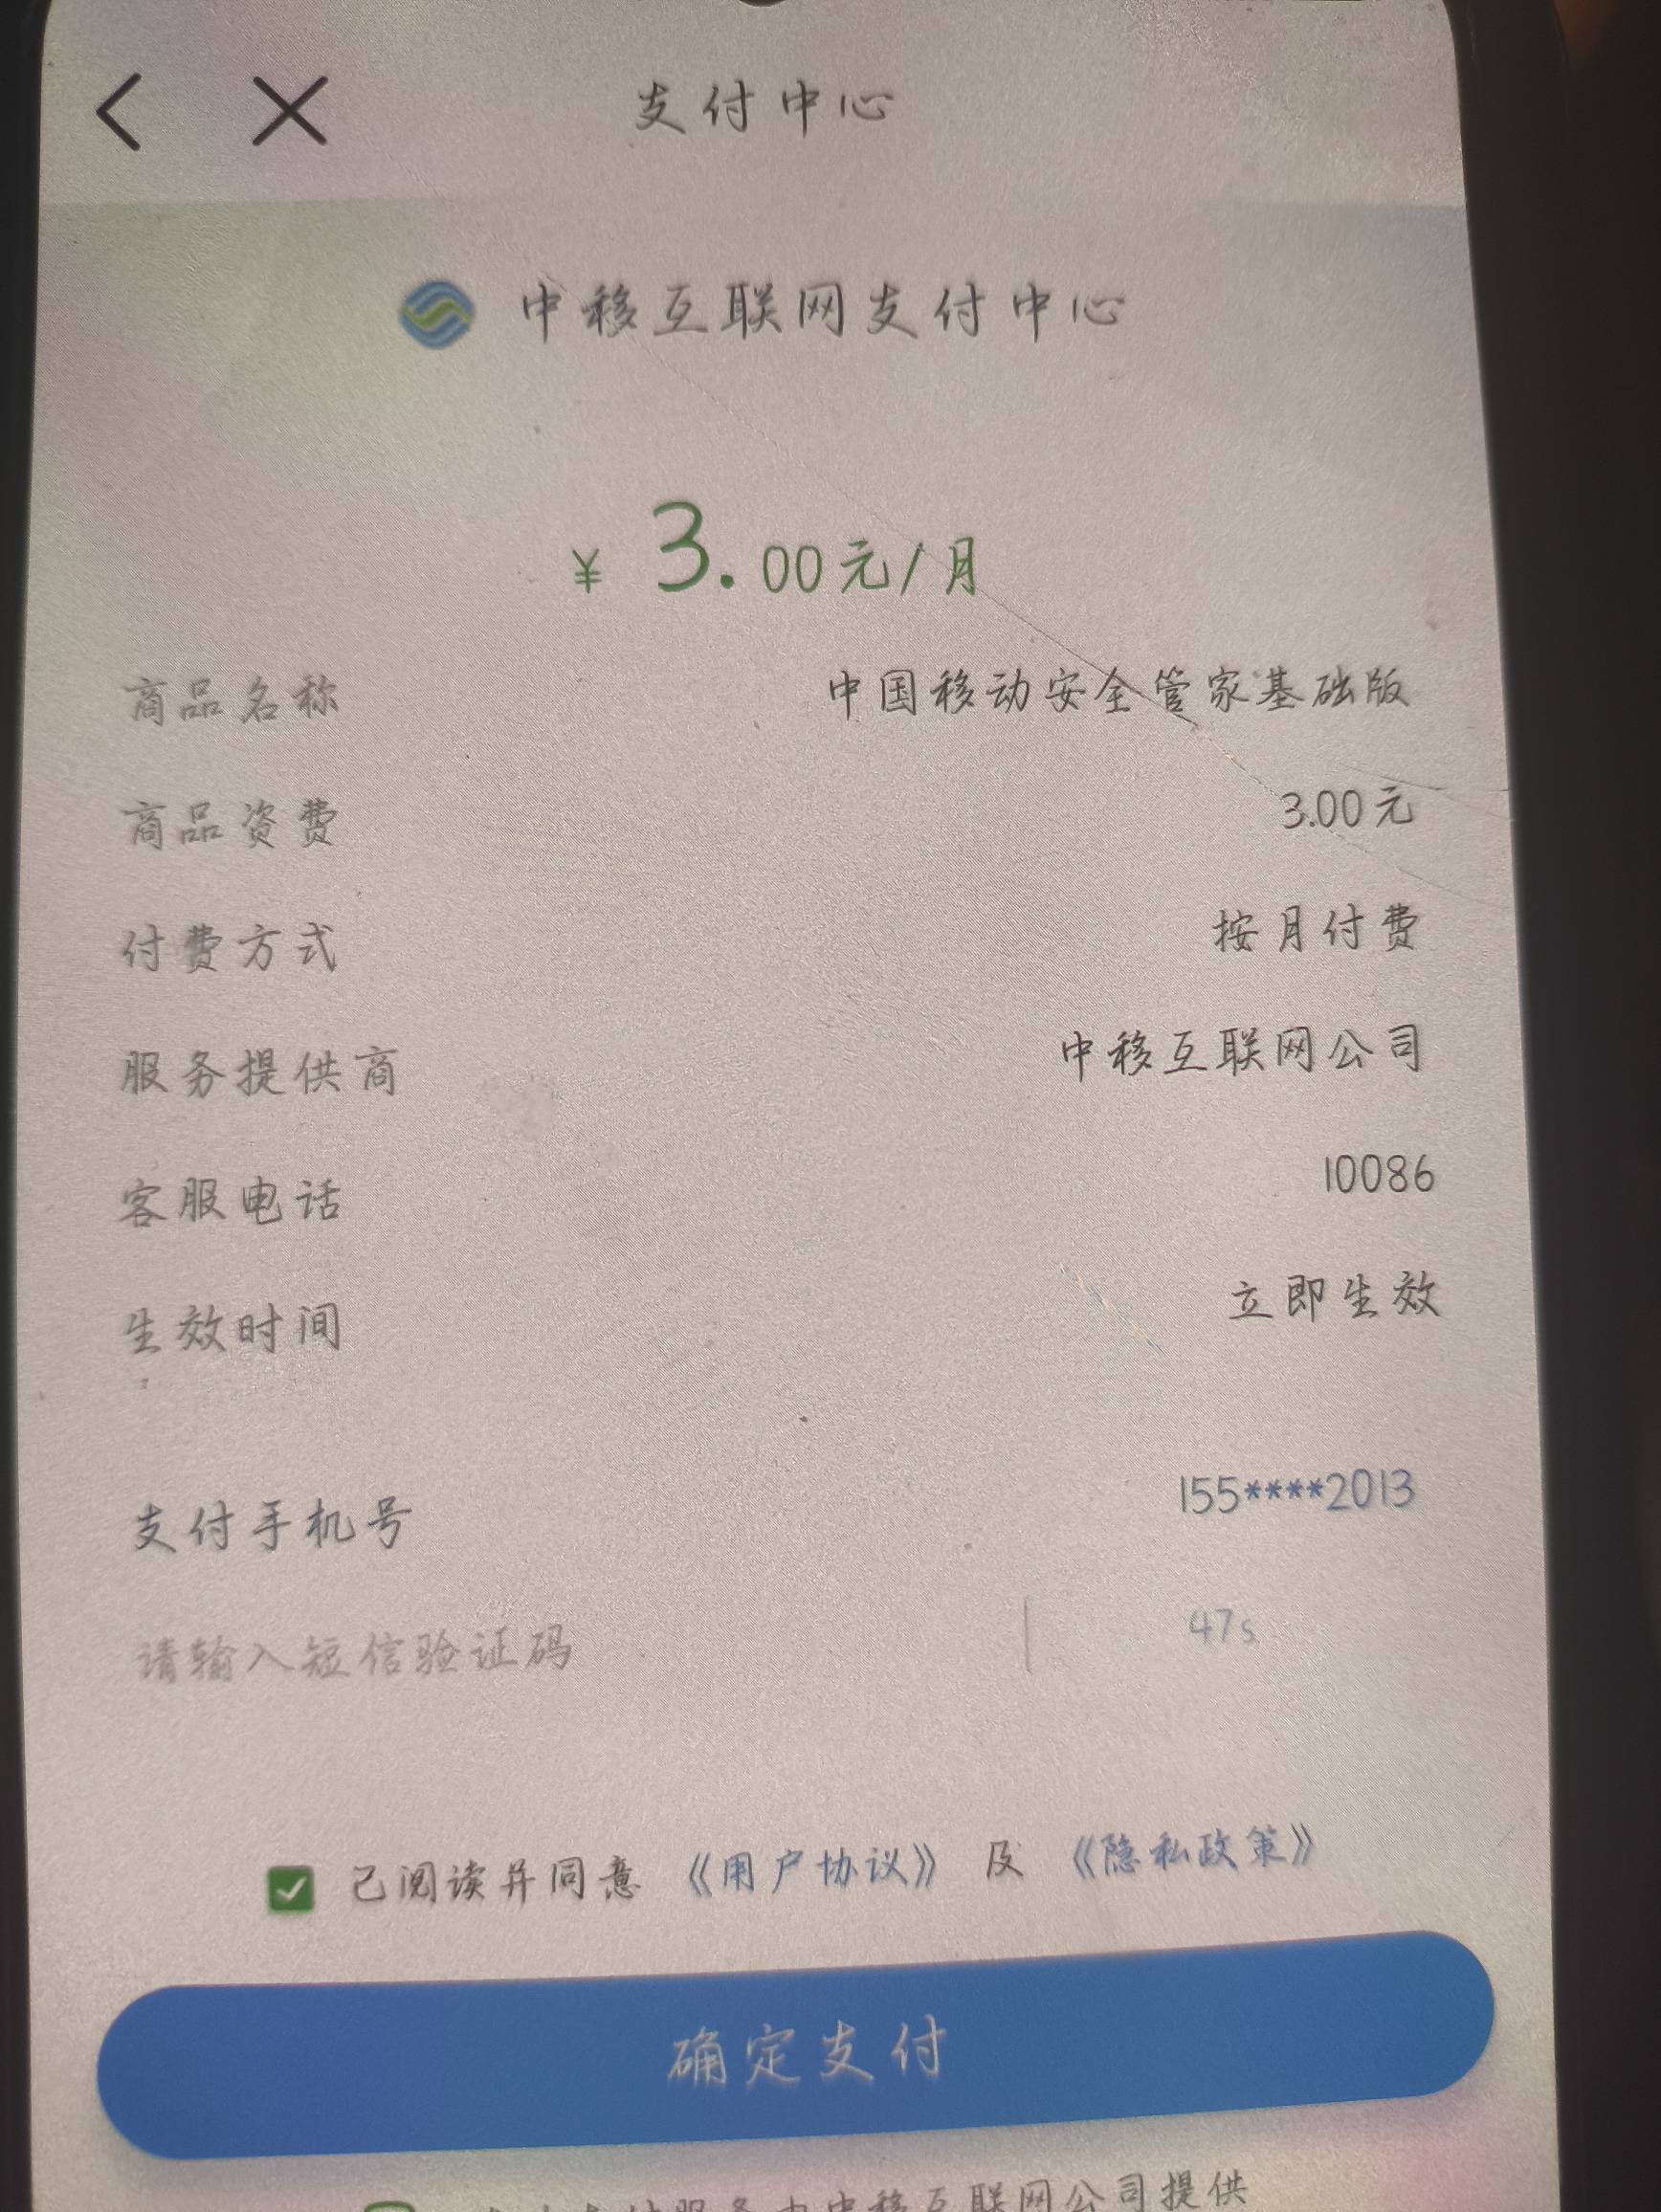 支付中心
中移互联网支付中心
¥ 3.00元/月
商品名称 中国移动安全管家基础版
商品资费 3.00元
付费方式 按月付费
服务提供商 中移互联网公司
客服电话 10086
生效时间 立即生效
支付手机号 155****2013
请输入短信验证码 47s
已阅读并同意《用户协议》及《隐私政策》
确定支付
支付服务由中移互联网公司提供